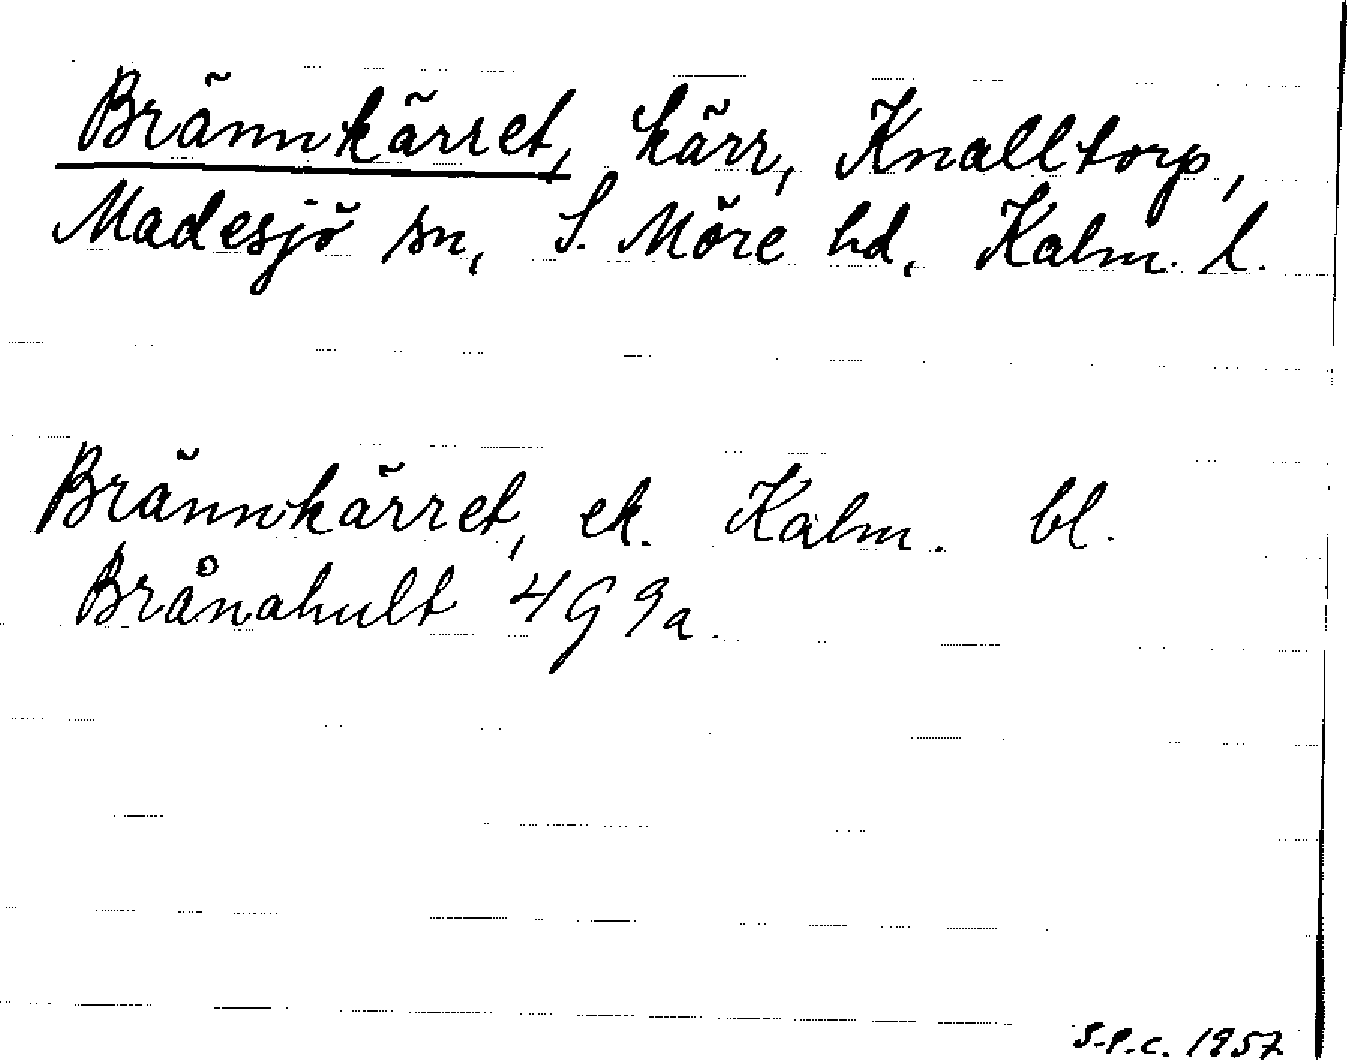 Brännkärret, kärr, Knalltorp,
Madesjö sn, S. Möre hd, Kalm. l.
Brännkärret, ek. Kalm. bl.
Brånahult 4G 9a.
S.P.C. 1957